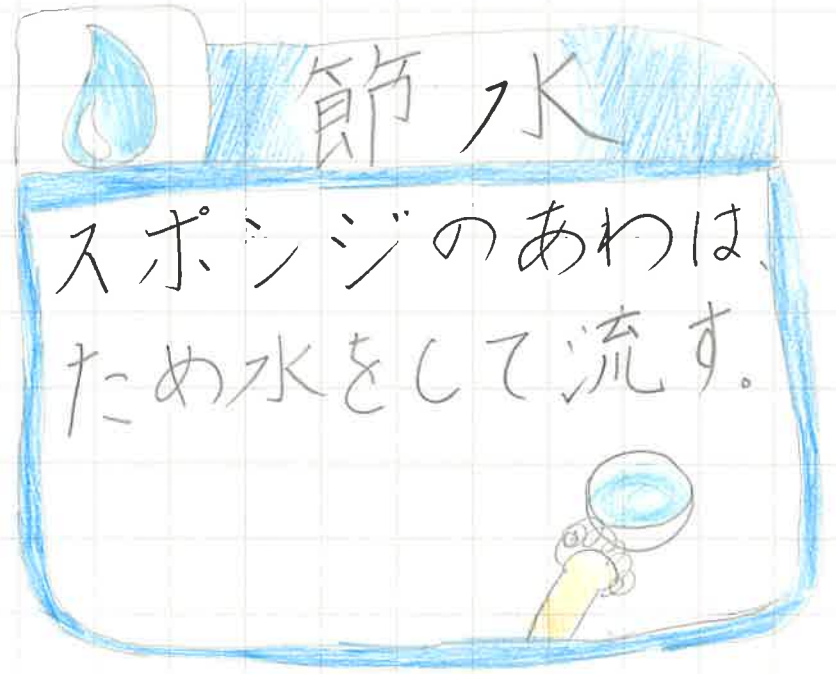 節水
スポンジのあわは、
ため水をして流す。